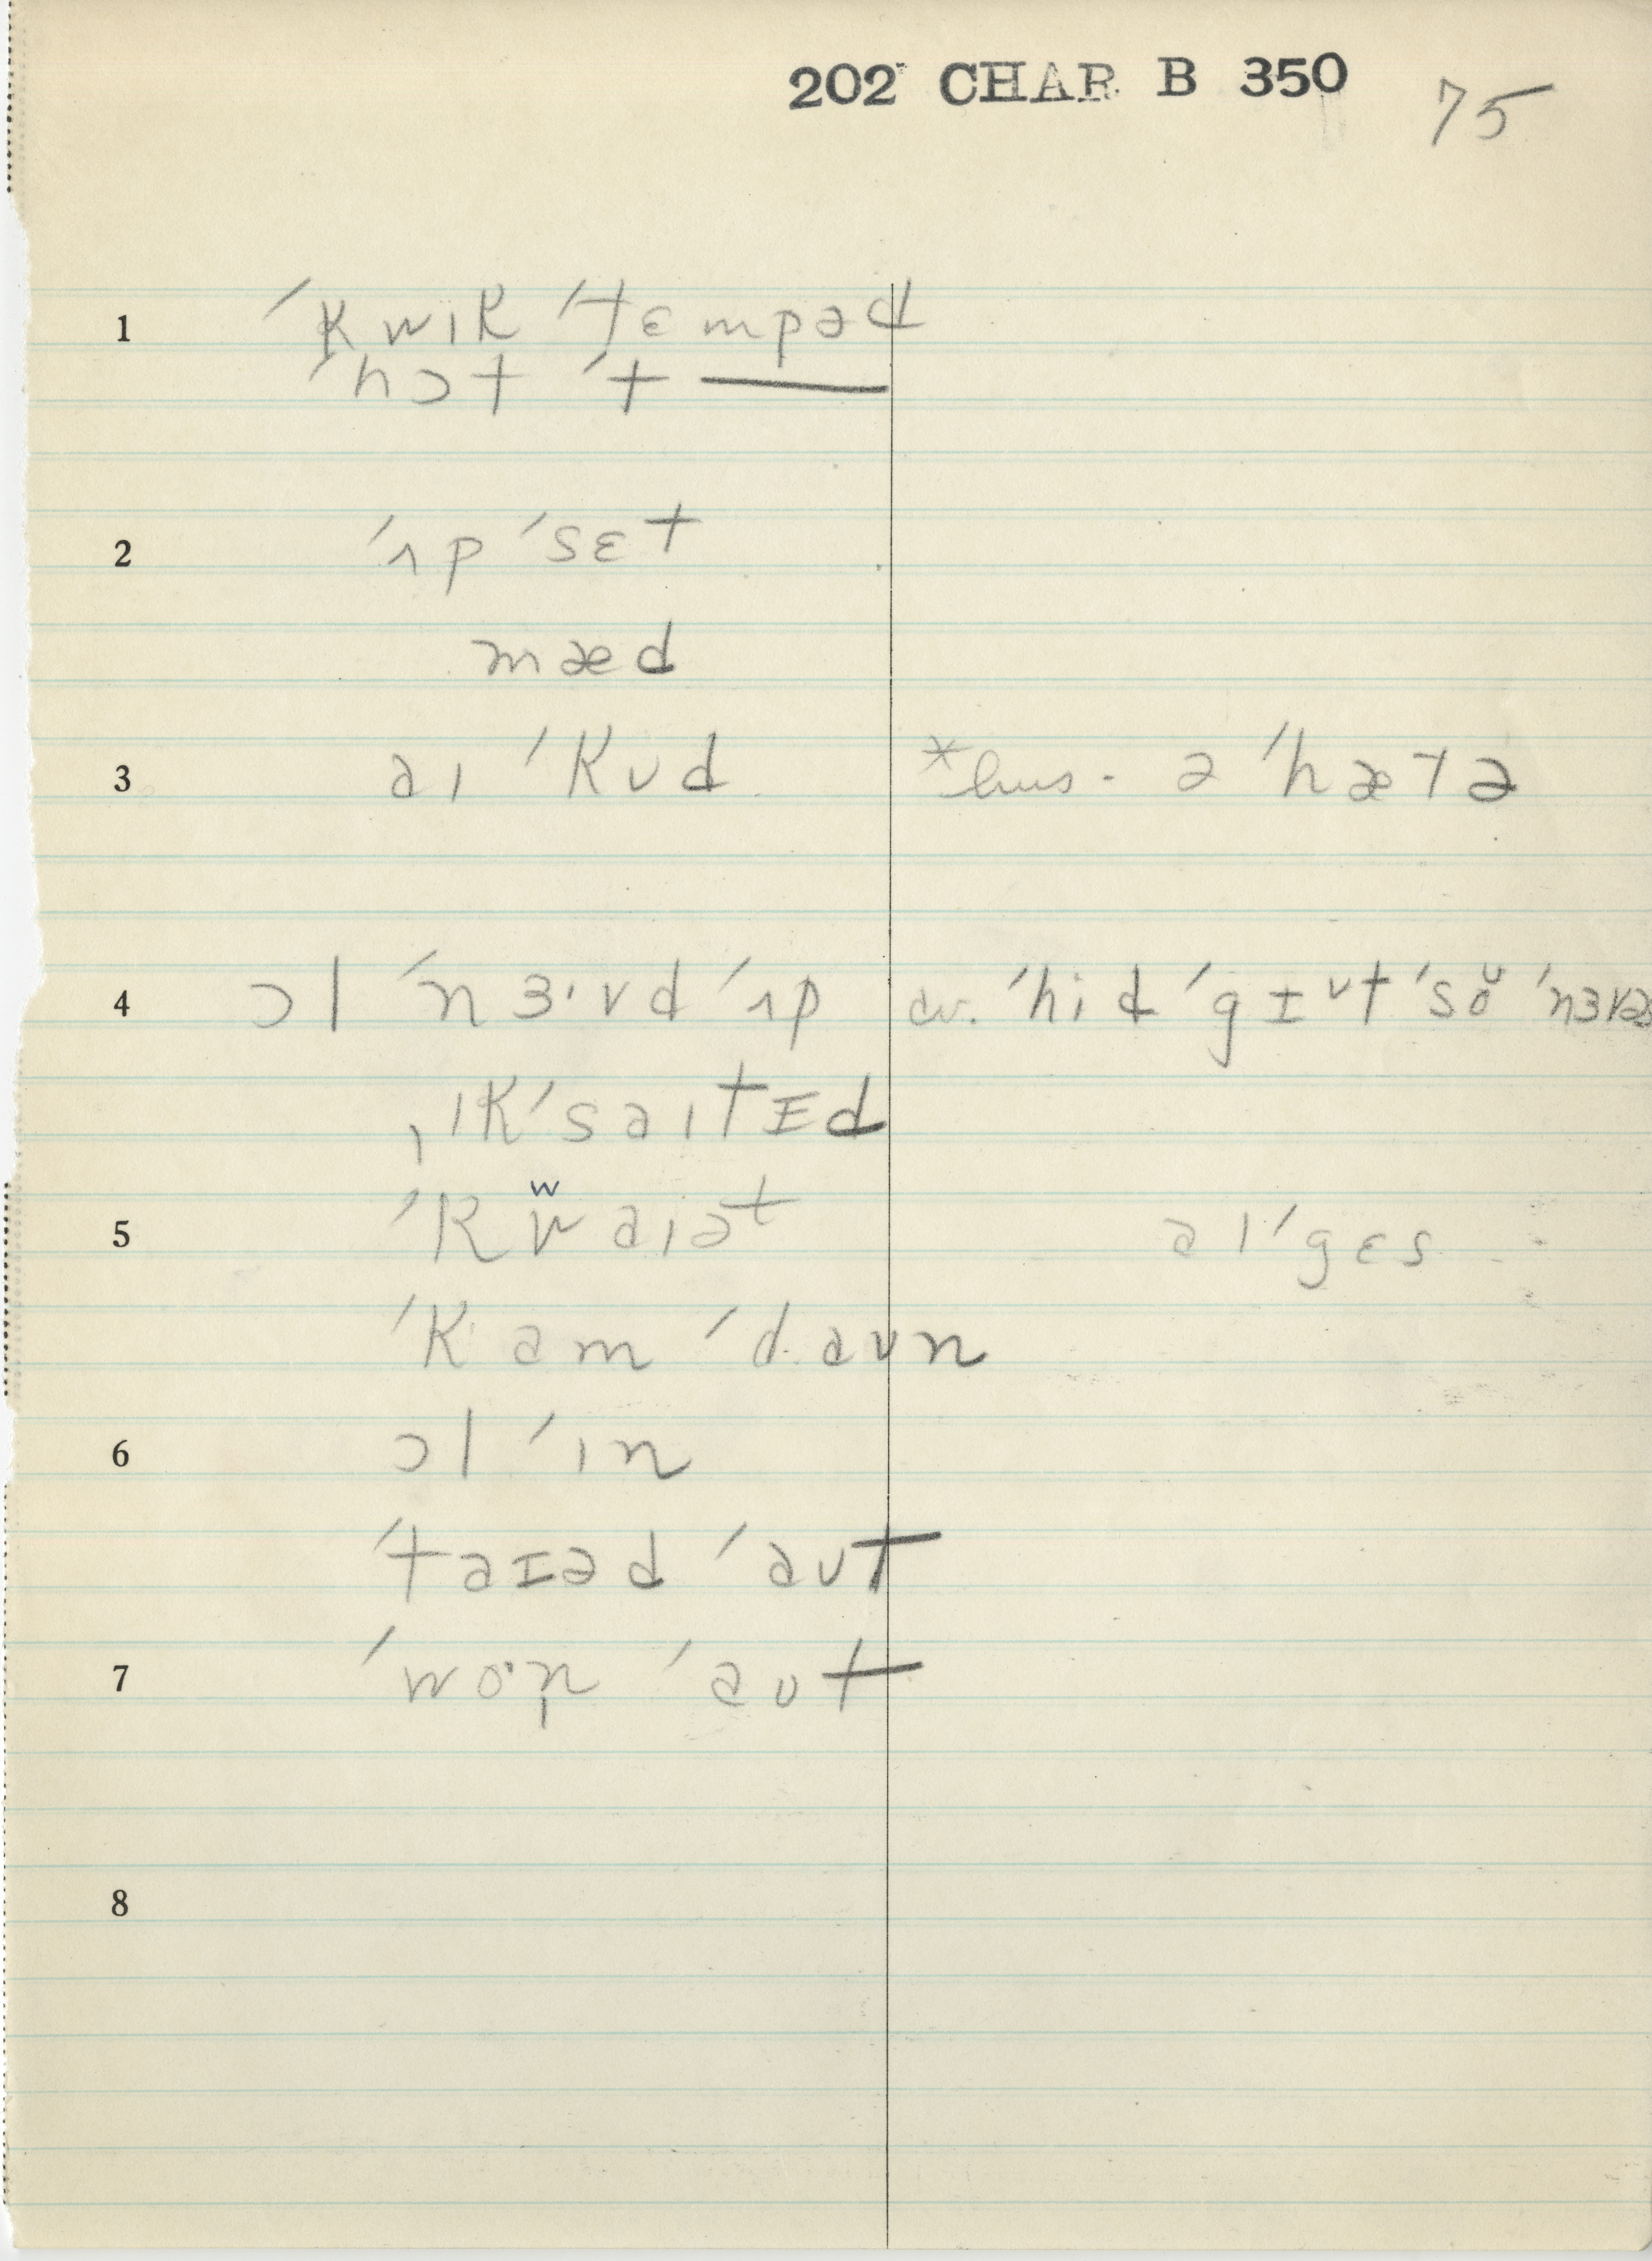 202 CHAR B 350 75
1 ˈkwɪk ˈtɛmpəd
ˈhɔt ˈt ——
2 ˈʌp ˈsɛt
mæd
3 aɪ ˈkʊd *hus. ə ˈhætə
4 ɔl ˈnɜ·vd ˈʌp cv. ˈhi d ˈgɪt ˈso ˈnɜvəs
ˌɪkˈsaɪtɪd
5 ˈkwaɪət aɪ ˈgɛs
ˈkam ˈdaʊn
6 ɔl ˈɪn
ˈtaɪəd ˈaʊt
7 ˈwoˑn ˈaʊt
8